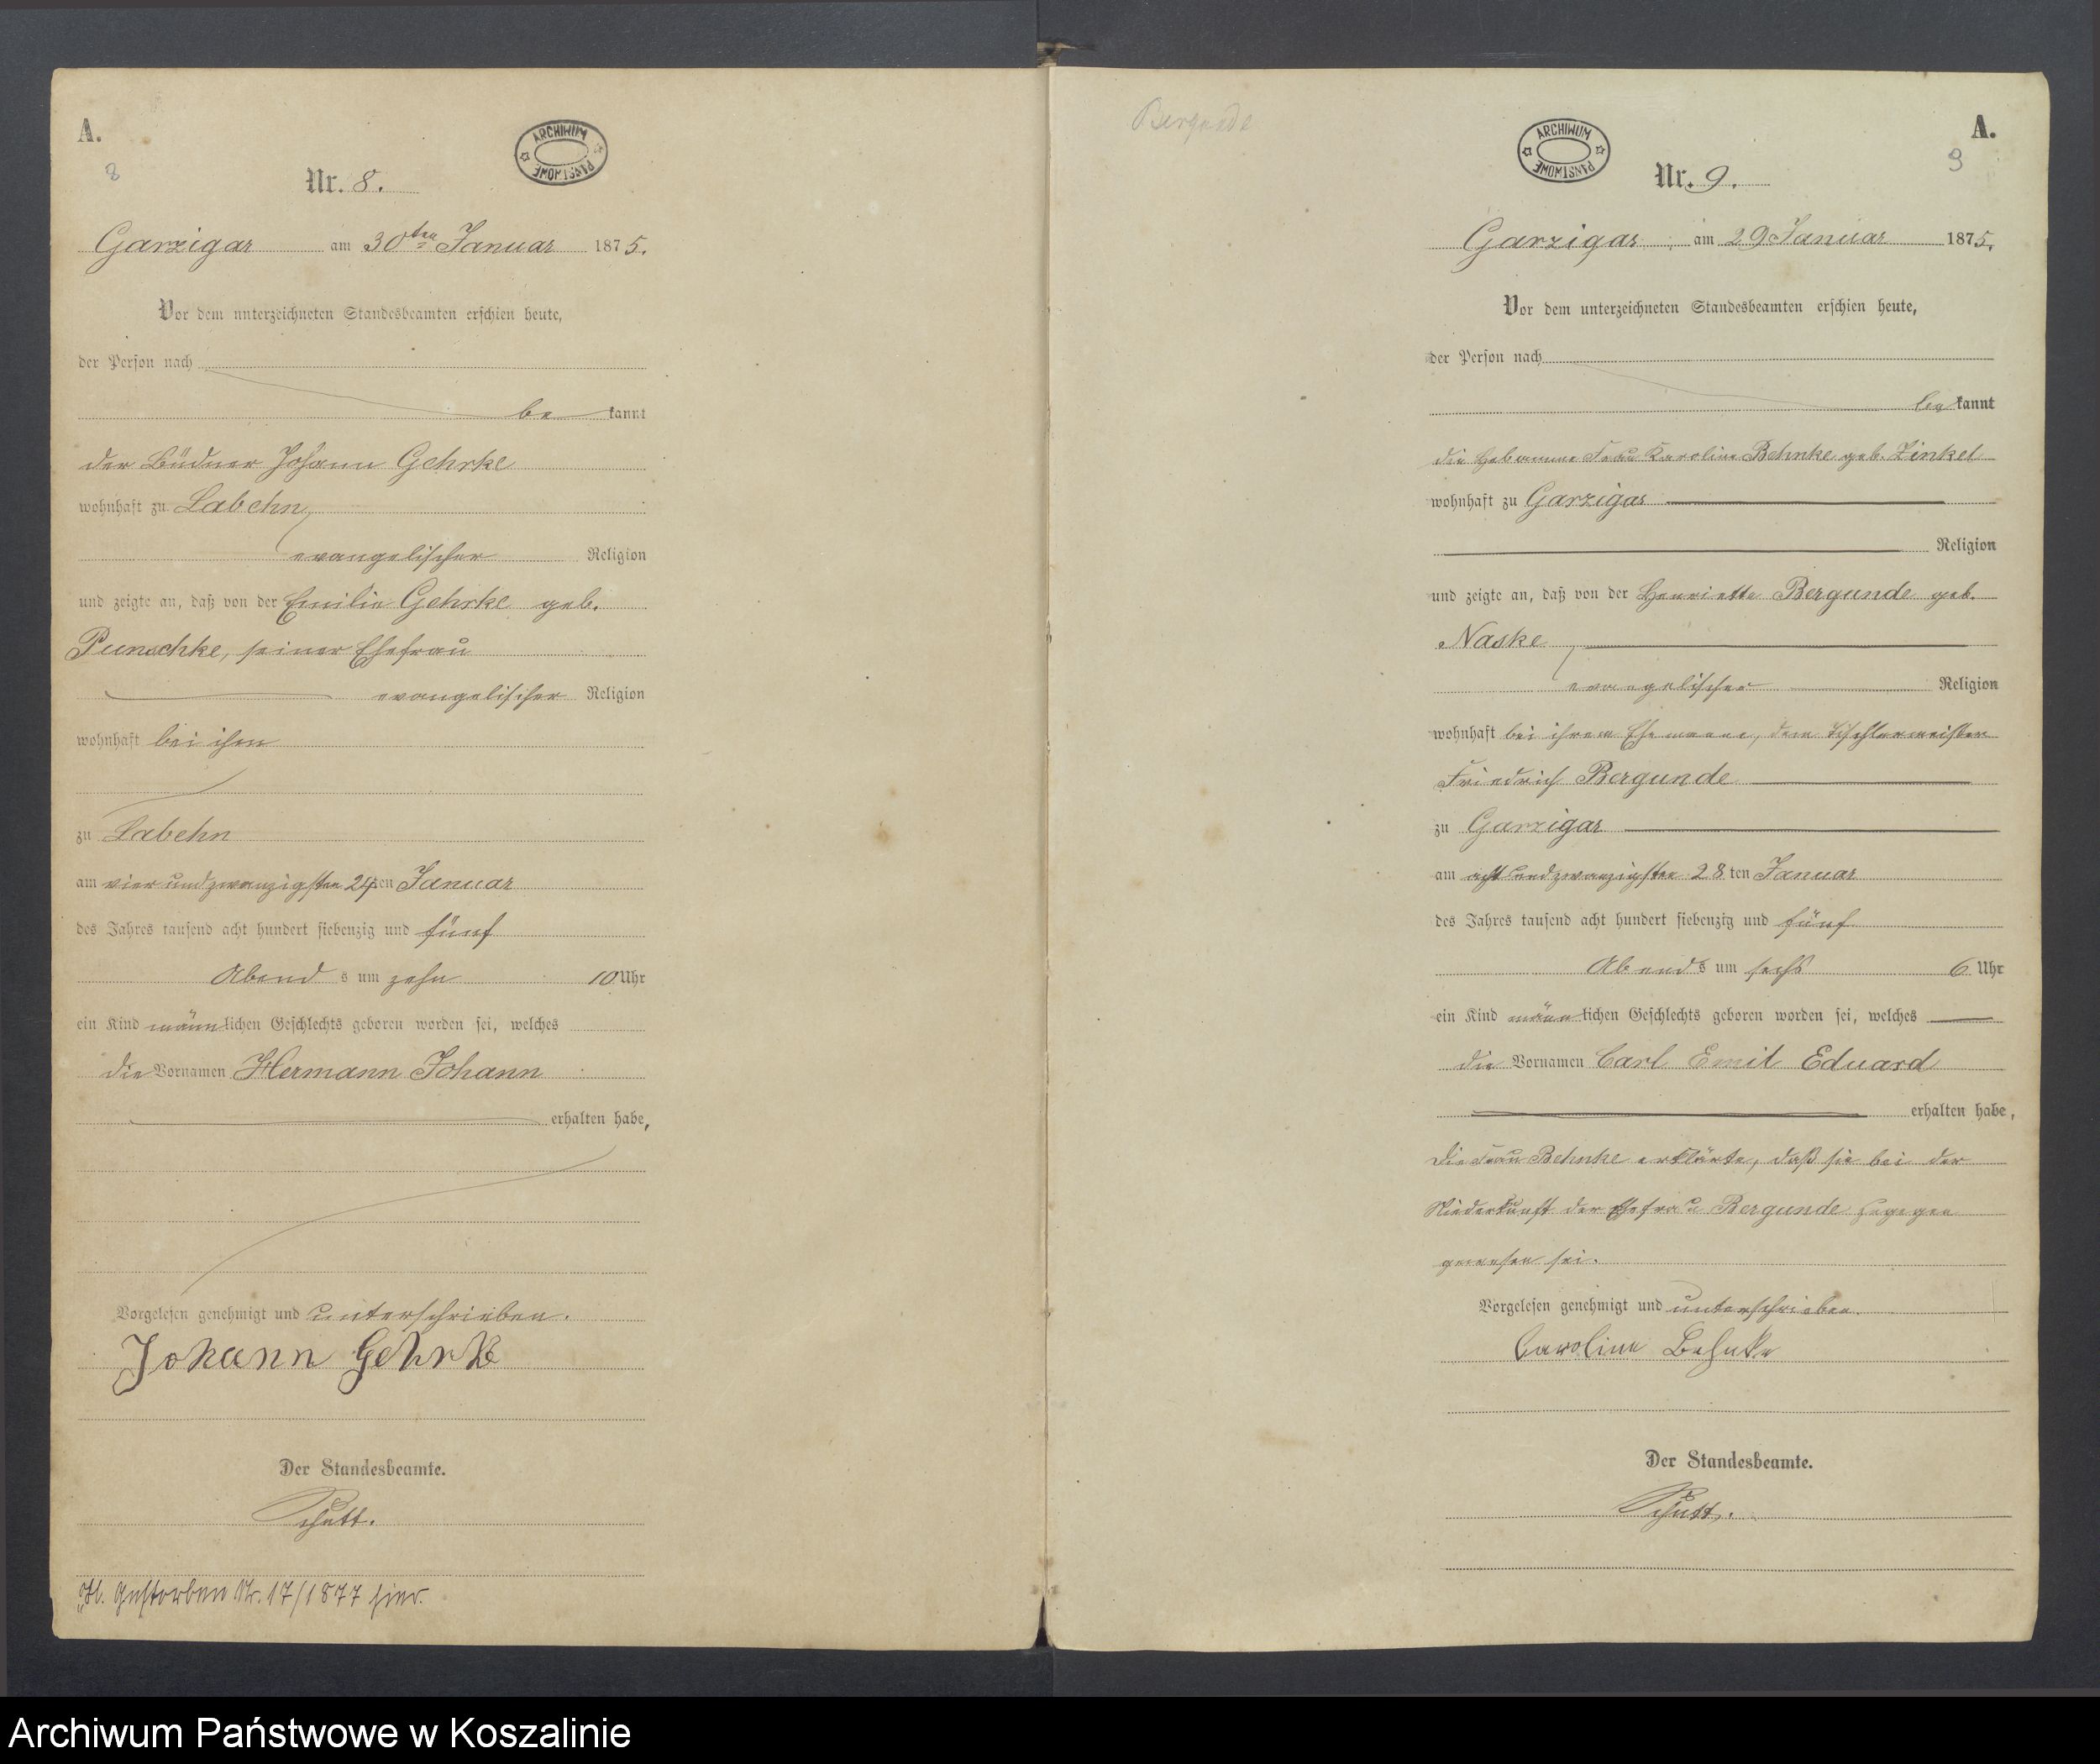 A.
8
ARCHIWUM PAŃSTWOWE
Nr. 8.
Garzigar am 30ten Januar 1875.
Vor dem unterzeichneten Standesbeamten erschien heute,
der Person nach
bekannt
der Büdner Johann Gehrke
wohnhaft zu Labehn,
evangelischer Religion
und zeigte an, daß von der Emilie Gehrke geb.
Punschke, seiner Ehefrau
evangelischer Religion
wohnhaft bei ihm
zu Labehn
am vier und zwanzigsten 24ten Januar
des Jahres tausend acht hundert siebenzig und fünf
Abends um zehn 10 Uhr
ein Kind männlichen Geschlechts geboren worden sei, welches
die Vornamen Hermann Johann
erhalten habe,
Vorgelesen genehmigt und unterschrieben.
Johann Gehrke
Der Standesbeamte.
Schutt.
Gestorben Nr. 17/1877 hier.
Bergunde
ARCHIWUM PAŃSTWOWE
A.
9
Nr. 9.
Garzigar am 29 Januar 1875.
Vor dem unterzeichneten Standesbeamten erschien heute,
der Person nach
bekannt
die Hebamme Frau Karoline Behnke geb. Zinkel
wohnhaft zu Garzigar
Religion
und zeigte an, daß von der Henriette Bergunde geb.
Naske
evangelischer Religion
wohnhaft bei ihrem Ehemanne, dem Tischlermeister
Friedrich Bergunde
zu Garzigar
am acht und zwanzigsten 28ten Januar
des Jahres tausend acht hundert siebenzig und fünf
Abends um sechs 6 Uhr
ein Kind männlichen Geschlechts geboren worden sei, welches
die Vornamen Carl Emil Eduard
erhalten habe,
Die Frau Behnke erklärte, daß sie bei der
Niederkunft der Ehefrau Bergunde zugegen
gewesen sei.
Vorgelesen genehmigt und unterschrieben.
Caroline Behnke
Der Standesbeamte.
Schutt.
Archiwum Państwowe w Koszalinie